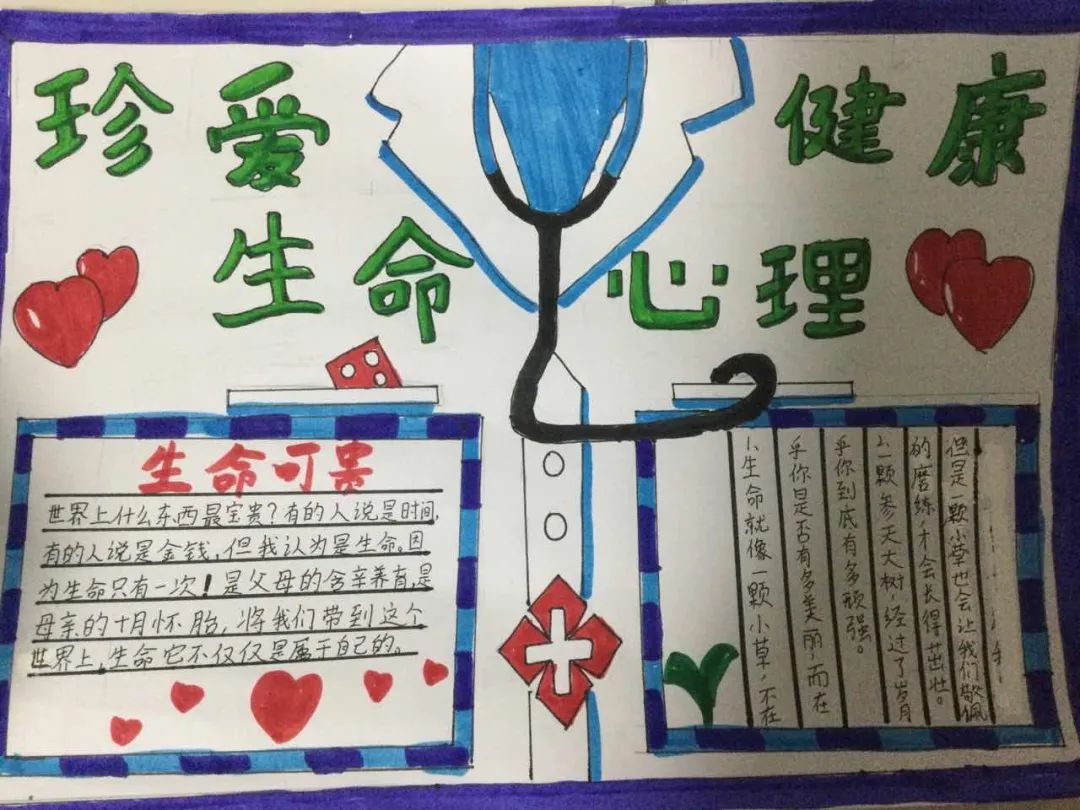 珍爱
生命
健康
心理
生命可贵
世界上什么东西最宝贵?有的人说是时间,
有的人说是金钱,但我认为是生命。因
为生命只有一次!是父母的含辛养育,是
母亲的十月怀胎,将我们带到这个
世界上,生命它不仅仅是属于自己的。
1、生命就像一颗小草,不在
乎你是否有多美丽,而在
乎你到底有多顽强。
2、一颗参天大树,经过了岁月
的磨练,才会长得茁壮。
但是一颗小草也会让我们敬佩